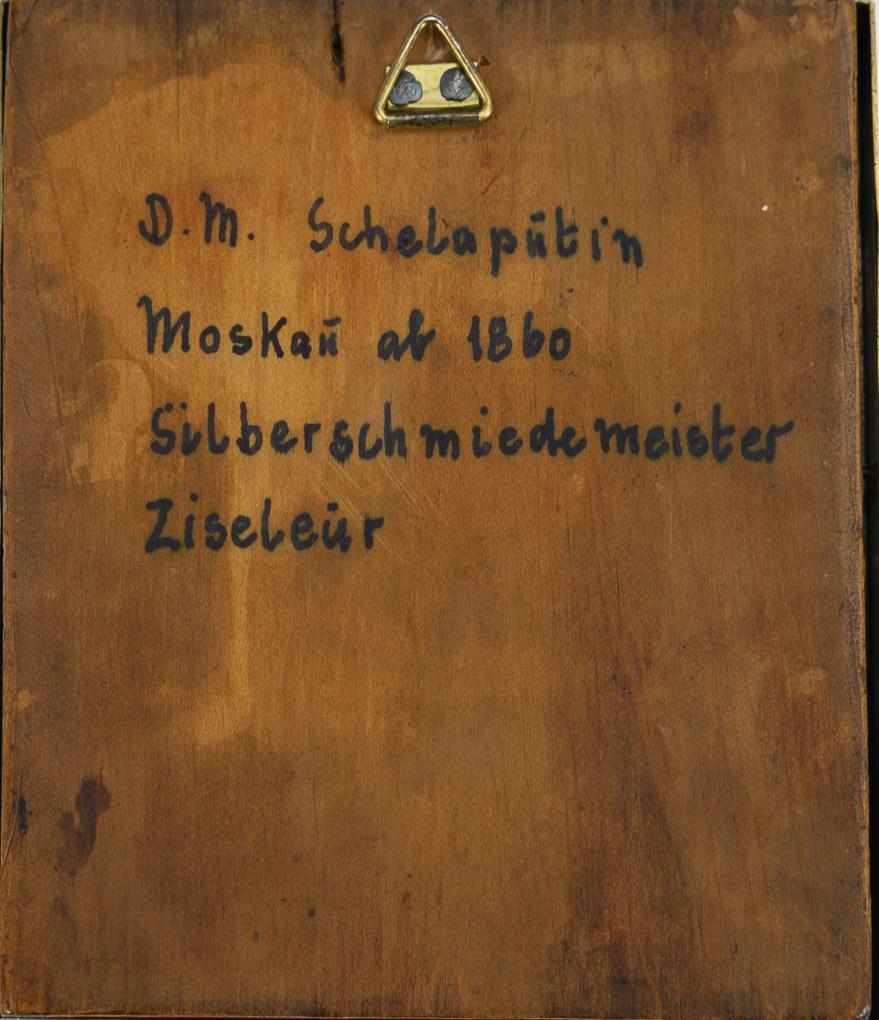 D.M. Schelapūtin
Moskaū ab 1860
Silberschmiedemeister
Ziseleūr